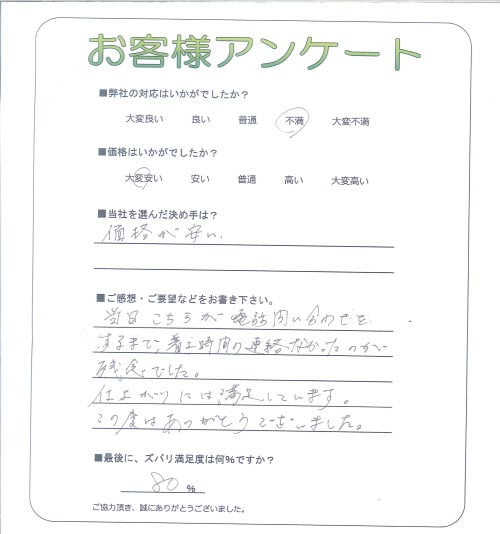 お客様アンケート
■弊社の対応はいかがでしたか?
大変良い 良い 普通 不満 大変不満
■価格はいかがでしたか?
大変安い 安い 普通 高い 大変高い
■当社を選んだ決め手は?
価格が安い
■ご感想・ご要望などをお書き下さい。
当日こちらが電話問い合わせを
するまで、着工時間の連絡なかったのが
残念でした。
仕上がりには満足しています。
この度はありがとうございました。
■最後に、ズバリ満足度は何%ですか?
80 %
ご協力頂き、誠にありがとうございました。